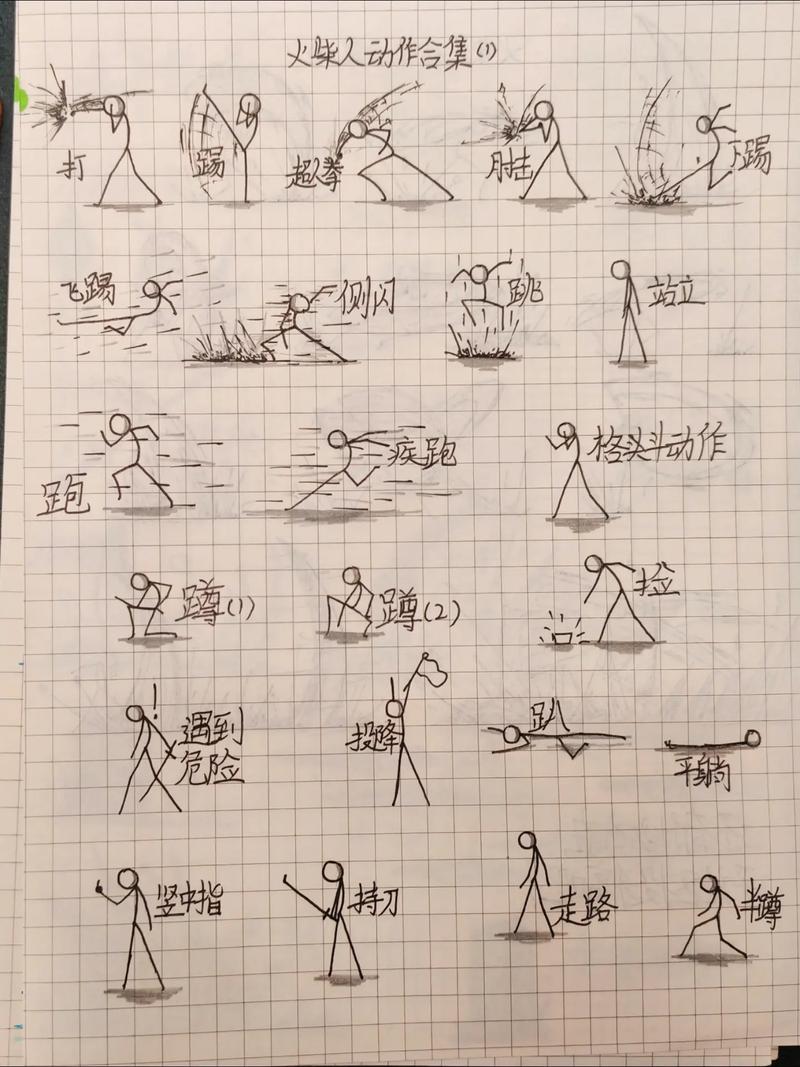 火柴人动作合集(1)
打
踢
超人拳
肘击
下踢
飞踢
侧闪
跳
站立
跑
疾跑
格头斗动作
蹲(1)
蹲(2)
捡
遇到
危险
投降
趴
平躺
竖中指
持刀
走路
半蹲